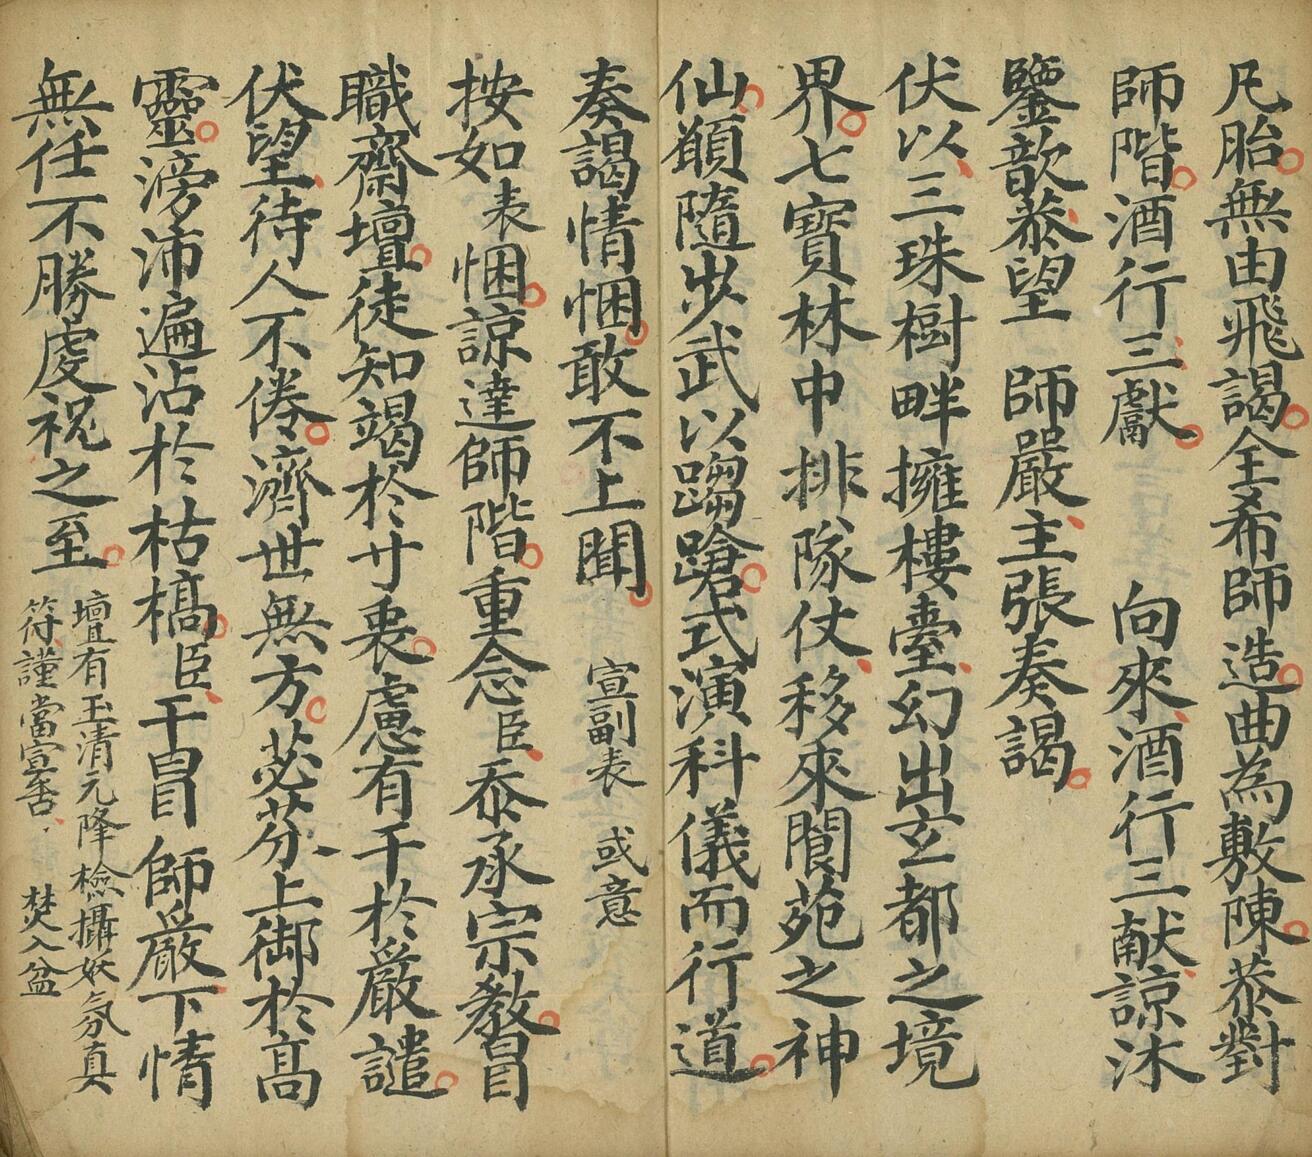 凡胎無由飛謁全希師造曲為敷陳恭對
師階酒行三獻　向來酒行三献諒沐
鑒歆恭望　師嚴主張奏謁
伏以三珠樹畔擁樓臺幻出玄都之境
界七寶林中排隊仗移來閬苑之神
仙願隨步武以蹌蹌式演科儀而行道
奏謁情悃敢不上聞　宣副表　或意
按如表悃諒達師階重念臣忝承宗教冒
職齋壇徒知竭於寸衷慮有干於嚴譴
伏望待人不倦濟世無方苾芬上御於高
靈滂沛遍沾於枯槁臣干冒　師嚴下情
無任不勝虔祝之至
壇有玉清元降檢攝妖氛真
符謹當宣告　焚入盆